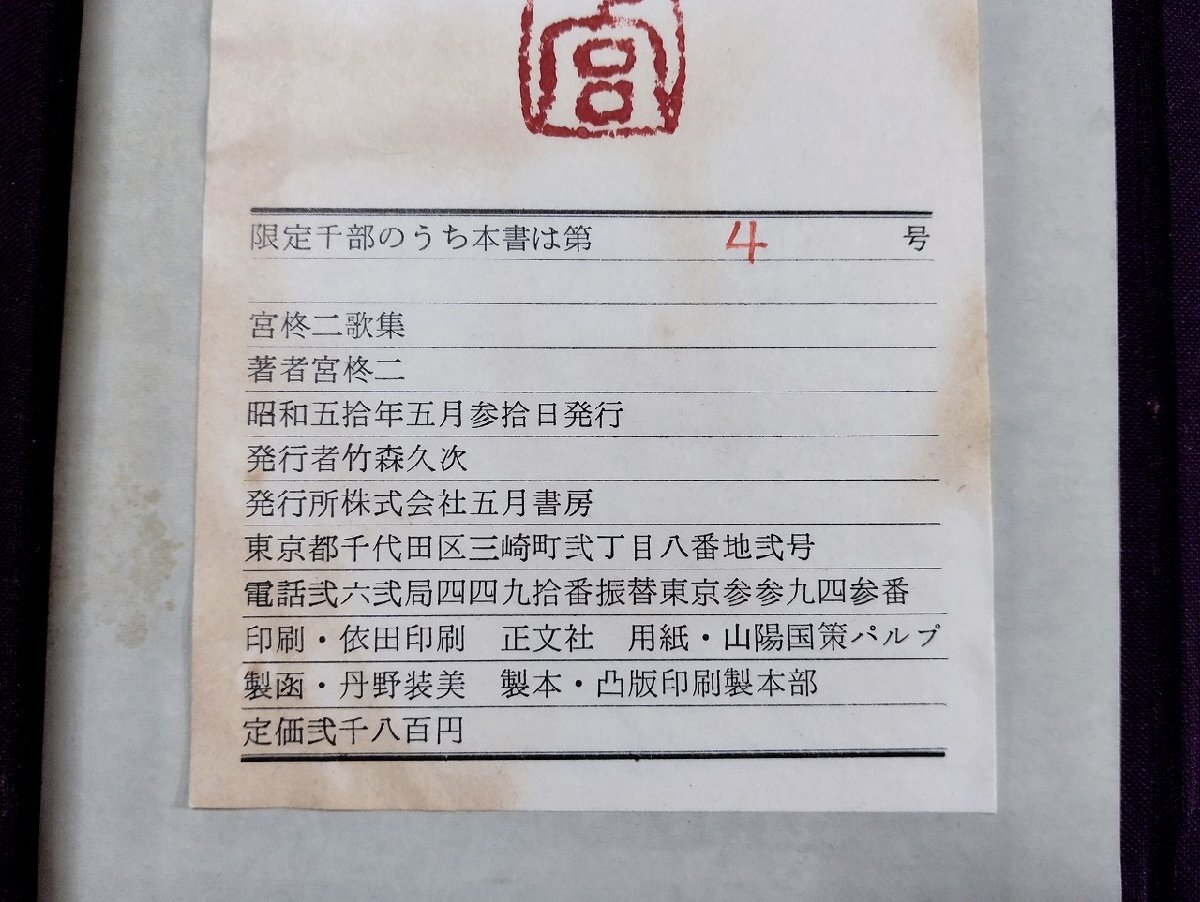 宮
限定千部のうち本書は第 4 号
宮柊二歌集
著者宮柊二
昭和五拾年五月参拾日発行
発行者竹森久次
発行所株式会社五月書房
東京都千代田区三崎町弐丁目八番地弐号
電話弐六弐局四四九拾番振替東京参参九四参番
印刷・依田印刷　正文社　用紙・山陽国策パルプ
製函・丹野装美　製本・凸版印刷製本部
定価弐千八百円